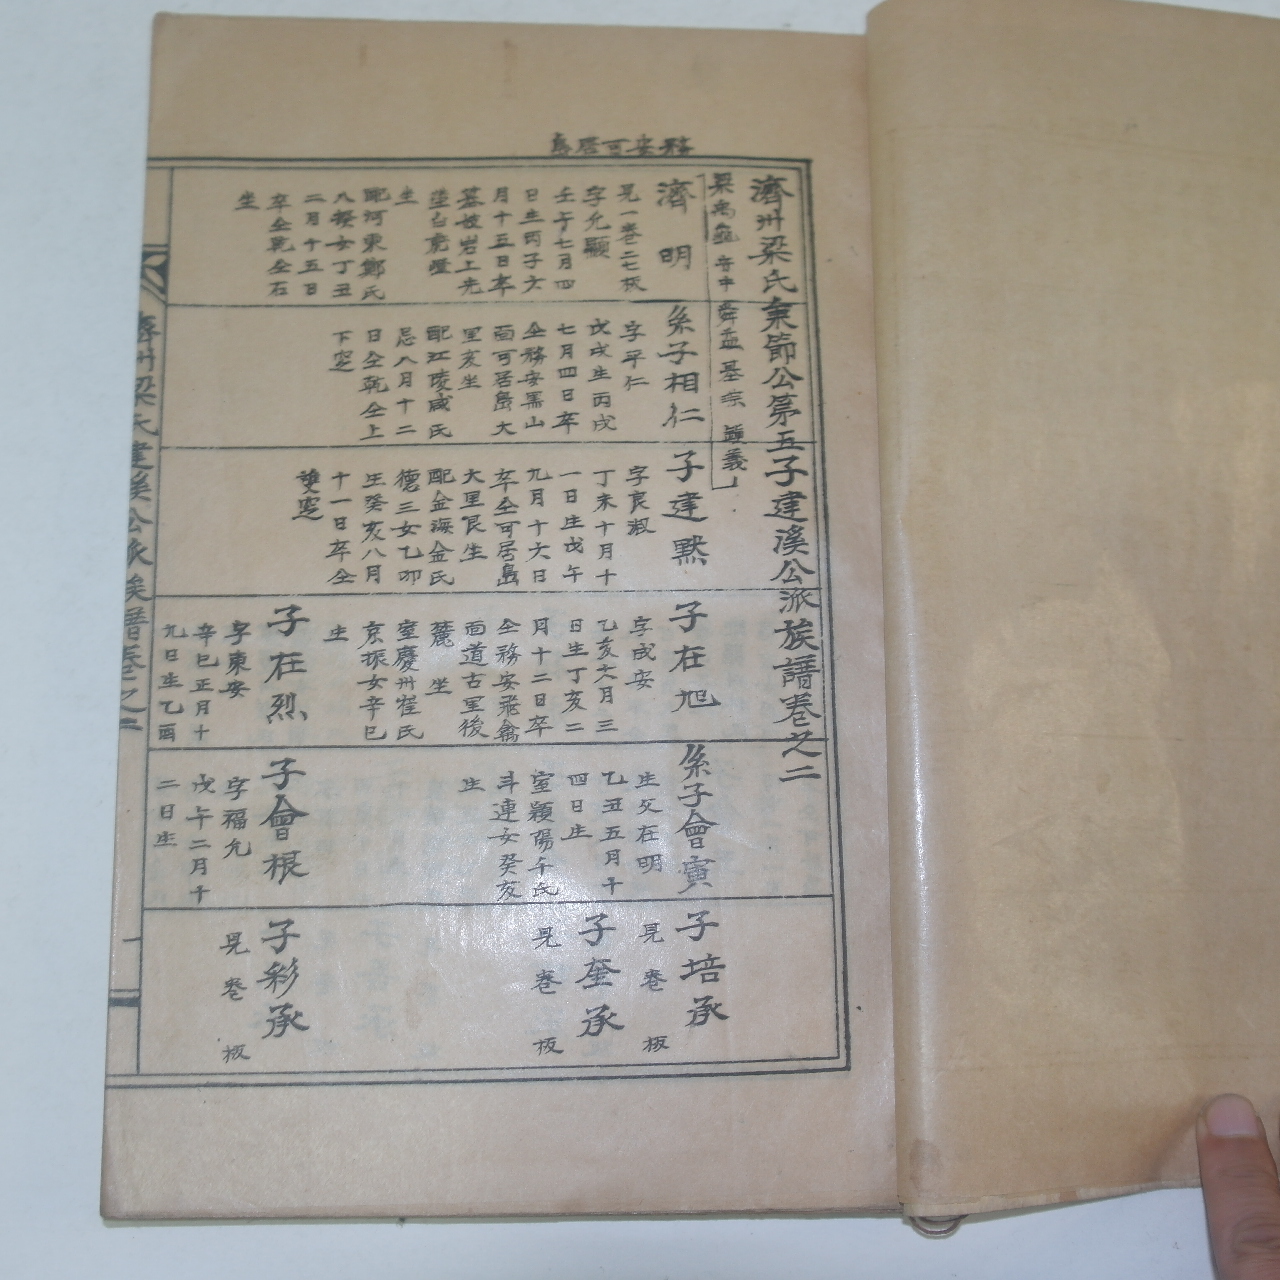 務安可居島
濟州梁氏秉節公第五子建溪公派族譜卷之二
梁禹龜 音中 舜孟 基宗 鎭義
濟明
見一卷二七板
字允顯
壬午七月四
日生丙子六
月十五日卒
墓妓岩上先
塋白虎嶝
坐
配河東鄭氏
八揆女丁丑
二月十五日
卒仝乾仝石
坐
系子相仁
字平仁
戊戌生丙戌
七月四日卒
仝務安黑山
面可居島大
里亥坐
配江陵咸氏
忌八月十二
日仝乾仝上
下窆
子建默
字良淑
丁未十月十
一日生戊午
九月十六日
卒仝可居島
大里艮坐
配金海金氏
德三女乙卯
生癸亥八月
十一日卒仝
雙窆
子在旭
字成安
乙亥六月三
日生丁亥二
月十二日卒
仝務安飛禽
面道古里後
麓 坐
室慶州崔氏
京振女辛巳
生
子在烈
字東安
辛巳正月十
九日生乙酉
系子會寅
生父在明
乙丑五月十
四日生
室穎陽千氏
斗連女癸亥
生
子會根
字福允
戊午二月十
二日生
子培承
見 卷 板
子奎承
見 卷 板
子彩承
見 卷 板
濟州梁氏建溪公派族譜卷之二
一